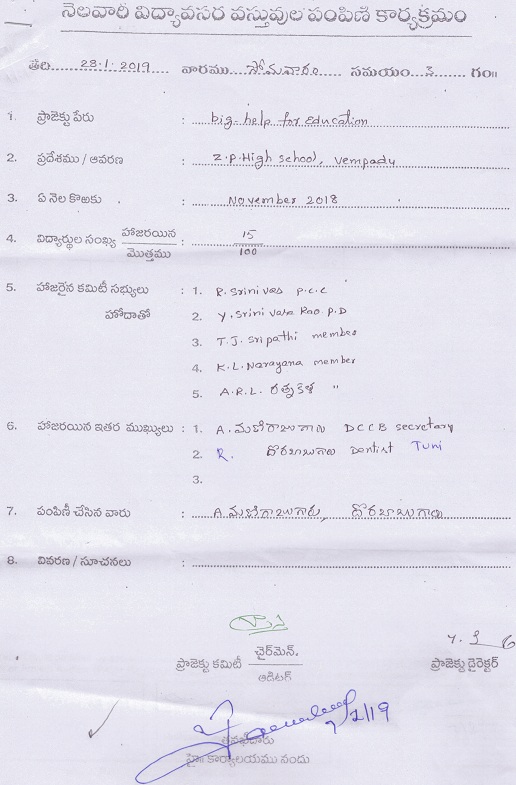 నెలవారీ విద్యావసర వస్తువుల పంపిణీ కార్యక్రమం
తేది.....28.1.2019..... వారము...సోమవారం...... సమయం.......గం॥
1. ప్రాజెక్టు పేరు : big help for Education
2. ప్రదేశము / ఆవరణ : Z.P. High school, Vempadu
3. ఏ నెల కొఱకు : November 2018
4. విద్యార్థుల సంఖ్య హాజరయిన / మొత్తము : 15 / 100
5. హాజరైన కమిటీ సభ్యులు : 1. R. Srinivas P.C.C
హోదాతో 2. Y. Srinivasa Rao P.D
3. T.J. Sripathi member
4. K.L. Narayana member
5. A.R.L. "
6. హాజరయిన ఇతర ముఖ్యులు : 1. A. DCCB secretary
2. R. దొరబాబుగారు Dentist Tuni
3.
7. పంపిణీ చేసిన వారు : A. దొరబాబుగారు
8. వివరణ / సూచనలు :
ప్రాజెక్టు కమిటీ ఛైర్మెన్. / ఆడిటర్
ప్రాజెక్టు డైరెక్టర్
కార్యాలయము నందు